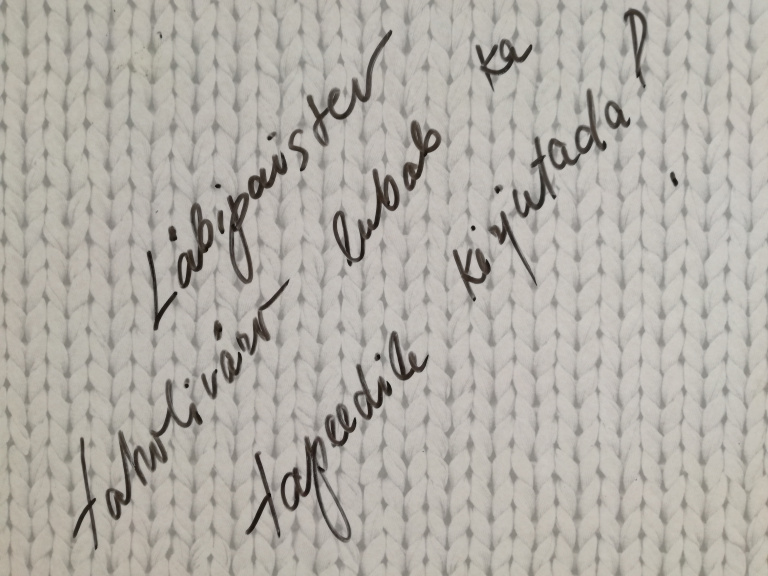 Läbipaistev
tahvlivärv lubab ka
tapeedile kirjutada!